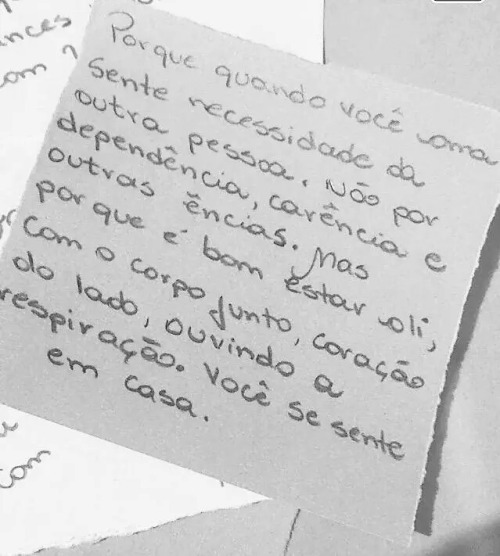 nces
com
Porque quando você ama
sente necessidade da
outra pessoa. Não por
dependência, carência e
outras ências. Mas
porque é bom estar ali,
com o corpo junto, coração
do lado, ouvindo a
respiração. Você se sente
em casa.
com